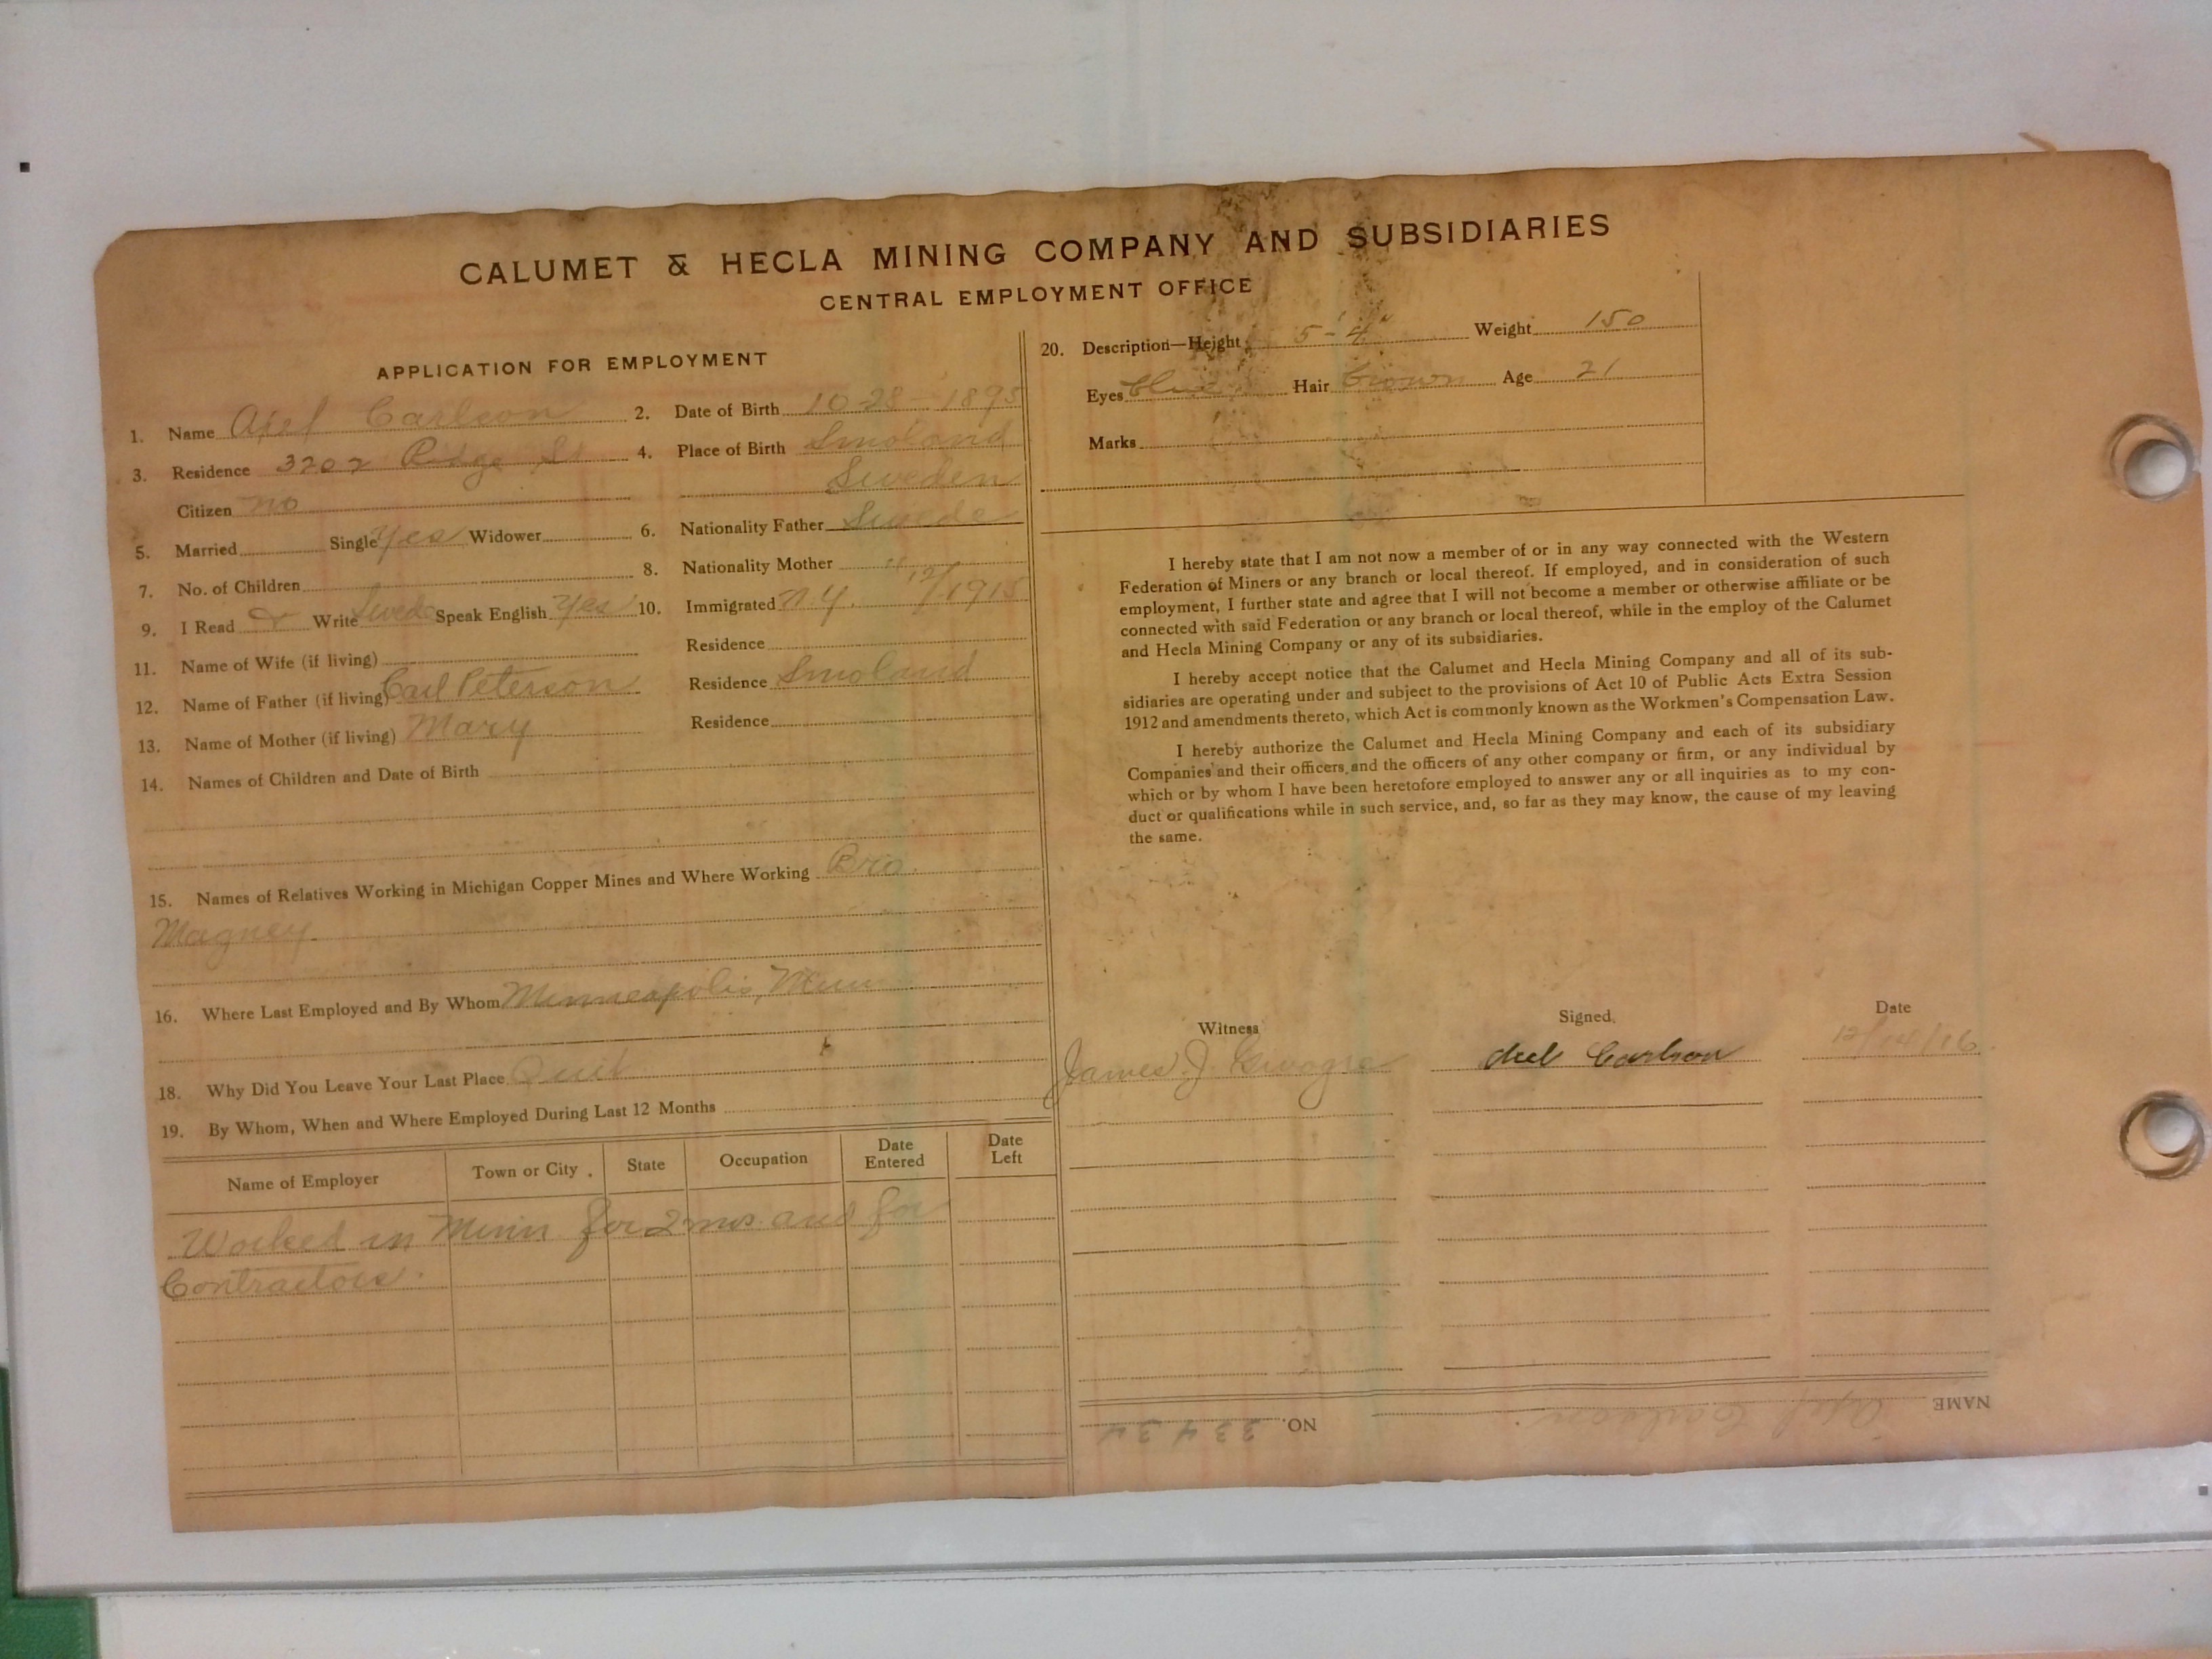 CALUMET & HECLA MINING COMPANY AND SUBSIDIARIES
CENTRAL EMPLOYMENT OFFICE
APPLICATION FOR EMPLOYMENT
1. Name Axel Carlson 2. Date of Birth 10-28-1895
3. Residence 3202 Ridge St 4. Place of Birth Smoland
Citizen no Sweden
5. Married Single yes Widower 6. Nationality Father Swede
7. No. of Children 8. Nationality Mother "
9. I Read & Write Swede Speak English yes 10. Immigrated N.Y. 12/1915
11. Name of Wife (if living) Residence
12. Name of Father (if living) Carl Peterson Residence Smoland
13. Name of Mother (if living) Mary Residence
14. Names of Children and Date of Birth
15. Names of Relatives Working in Michigan Copper Mines and Where Working Bro.
Magney.
16. Where Last Employed and By Whom Minneapolis, Minn
18. Why Did You Leave Your Last Place Quit
19. By Whom, When and Where Employed During Last 12 Months
Name of Employer Town or City. State Occupation Date Entered Date Left
Worked in Minn for 2 mos. and for
Contractors.
20. Description—Height 5'-4" Weight 150
Eyes blue Hair brown Age 21
Marks
I hereby state that I am not now a member of or in any way connected with the Western
Federation of Miners or any branch or local thereof. If employed, and in consideration of such
employment, I further state and agree that I will not become a member or otherwise affiliate or be
connected with said Federation or any branch or local thereof, while in the employ of the Calumet
and Hecla Mining Company or any of its subsidiaries.
I hereby accept notice that the Calumet and Hecla Mining Company and all of its sub-
sidiaries are operating under and subject to the provisions of Act 10 of Public Acts Extra Session
1912 and amendments thereto, which Act is commonly known as the Workmen's Compensation Law.
I hereby authorize the Calumet and Hecla Mining Company and each of its subsidiary
Companies and their officers, and the officers of any other company or firm, or any individual by
which or by whom I have been heretofore employed to answer any or all inquiries as to my con-
duct or qualifications while in such service, and, so far as they may know, the cause of my leaving
the same.
Witness Signed, Date
James J. Axel Carlson 12/14/16
NAME Axel Carlson NO. 33434